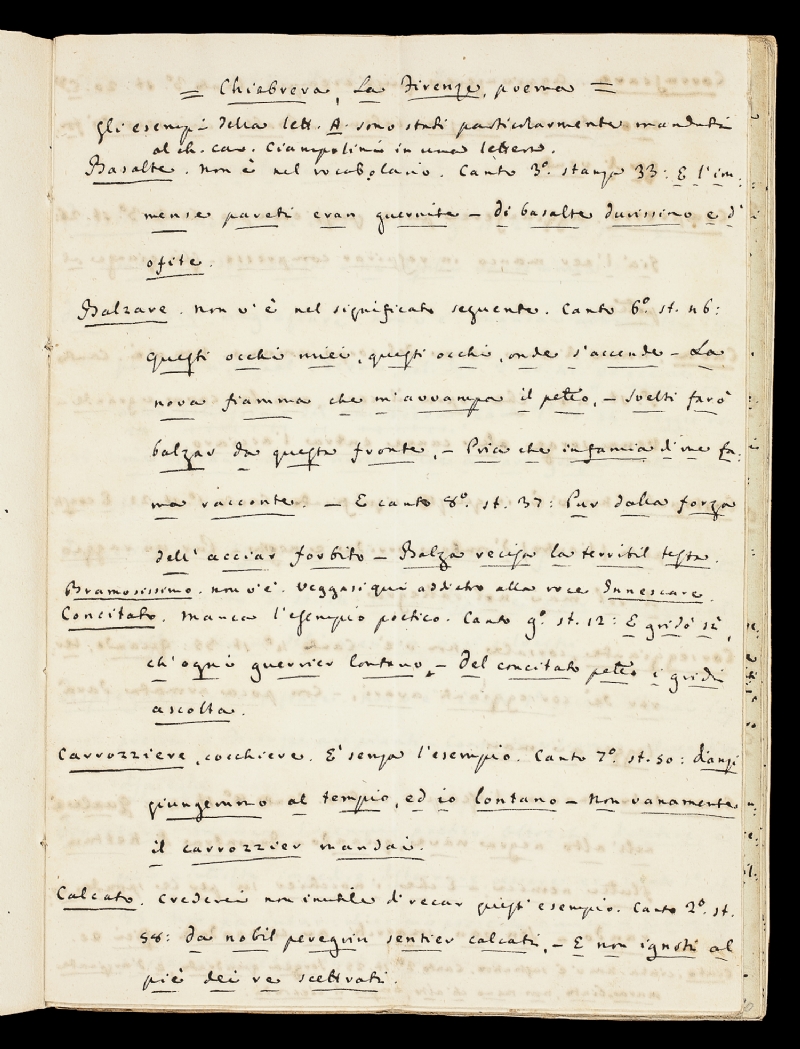 = Chiabrera, La Firenze, poema =
Gli esempi della lett. A. sono stati particolarmente mandati
al ch. cav. Ciampolini in una lettera.
Basalte. Non è nel vocabolario. Canto 3º. stanza 33: E l'im-
mense pareti eran guernite – di basalte durissimo e d'
ofite.
Balzare. Non v'è nel significato seguente. Canto 6º. st. 46:
Questi occhi miei, questi occhi, onde s'accende – La
nova fiamma che m'avvampa il petto, – Svelti farò
balzar da questa fronte, – Pria che infamia di me fa-
ma racconte. – E canto 8º. st. 37: Pur dalla forza
dell' acciar forbito – Balza recisa la terribil testa.
Bramosissimo. non v'è. Veggasi qui addietro alla voce Innescare.
Concitato. Manca l'esempio poetico. Canto 9º. st. 12: E gridò sì,
ch'ogni guerrier lontano, – Del concitato petto i gridi
ascolta.
Carrozziere, cocchiere. E' senza l'esempio. Canto 7º. st. 50: dianzi
giungemmo al tempio, ed io lontano – Non vanamente
il carrozzier mandai.
Calcato. Crederei non inutile di recar quest' esempio. Canto 2º. st.
58: da nobil peregrin sentier calcati, – E non ignoti al
piè dei re scettrati.